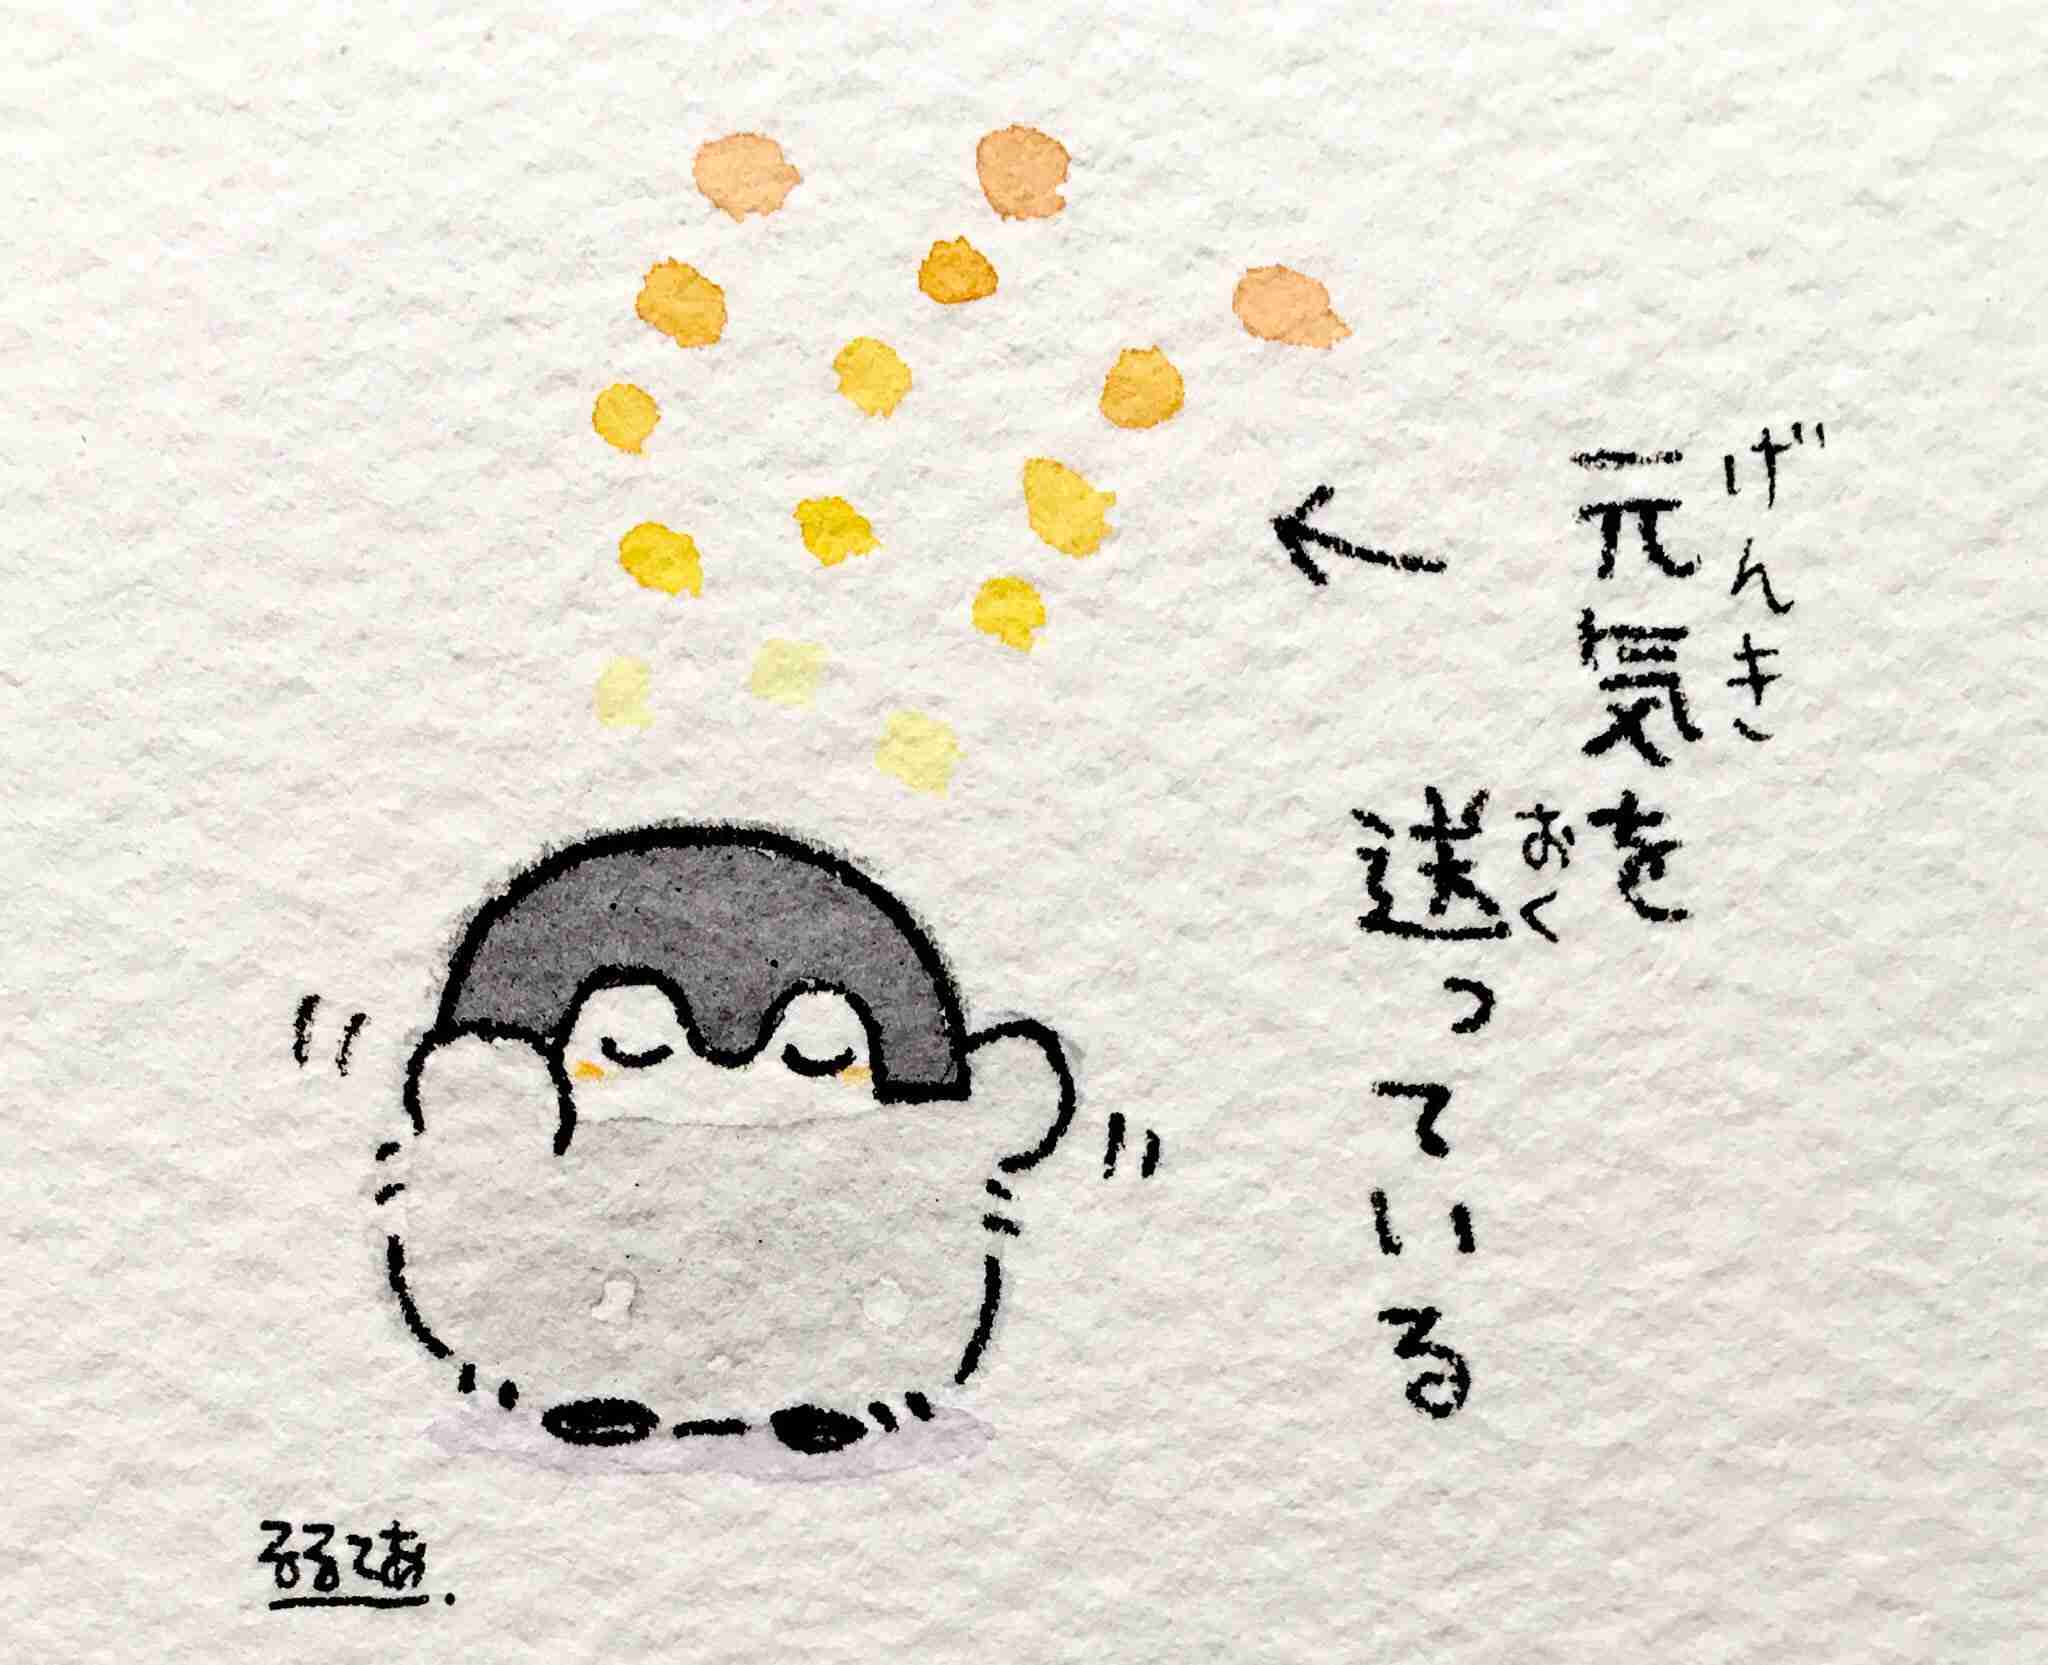 元気を
げんき
送っている
おく
るるてあ.